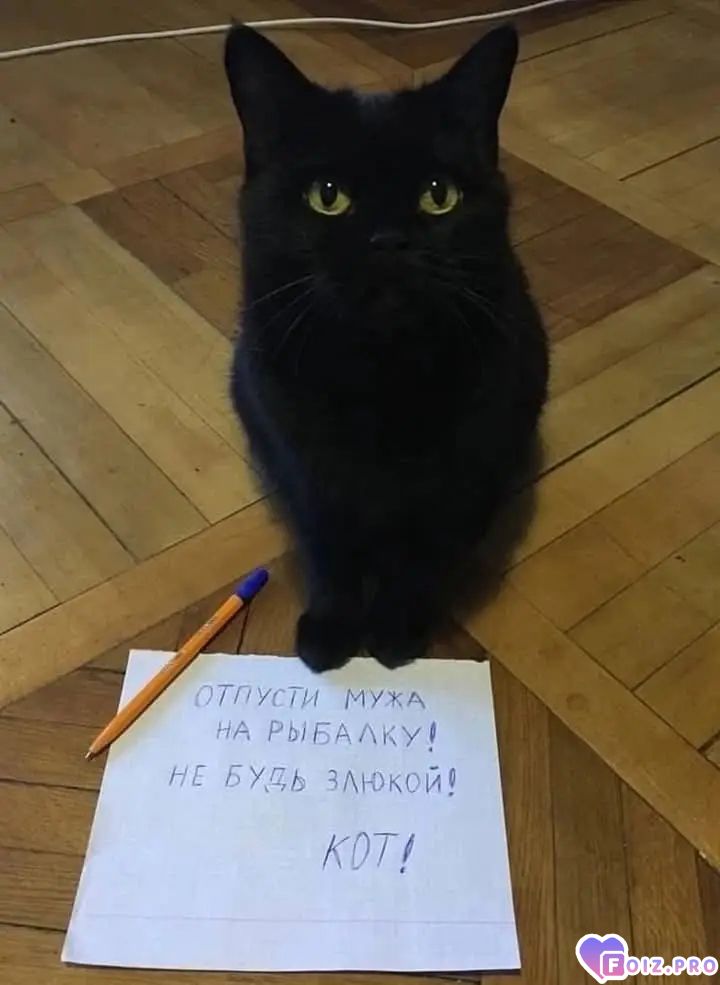 ОТПУСТИ МУЖА
НА РЫБАЛКУ!
НЕ БУДЬ ЗЛЮКОЙ!
КОТ!
FOIZ.PRO